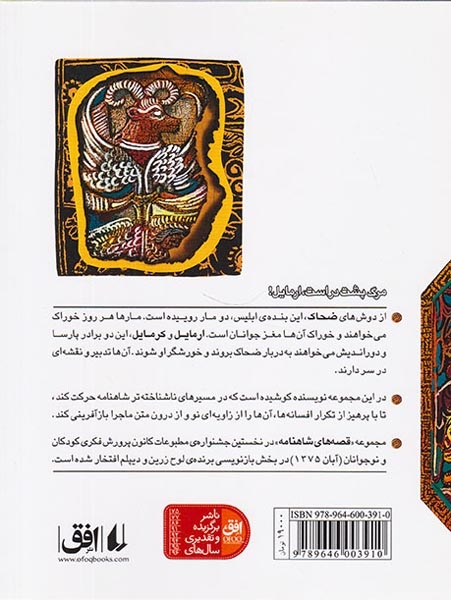 مرگ پشت در است، ارمایل!
از دوش‌های ضحاک، این بنده‌ی ابلیس، دو مار روییده است. مارها هر روز خوراک
می‌خواهند و خوراک آن‌ها مغز جوانان است. ارمایل و گرمایل، این دو برادر پارسا
و دوراندیش می‌خواهند به دربار ضحاک بروند و خورشگر او شوند. آن‌ها تدبیر و نقشه‌ای
در سر دارند.
در این مجموعه نویسنده کوشیده است که در مسیرهای ناشناخته‌تر شاهنامه حرکت کند،
تا با پرهیز از تکرار افسانه‌ها، آن‌ها را از زاویه‌ای نو و از درون متن ماجرا بازآفرینی کند.
مجموعه «قصه‌های شاهنامه» در نخستین جشنواره‌ی مطبوعات کانون پرورش فکری کودکان
و نوجوانان (آبان ۱۳۷۵) در بخش بازنویسی برنده‌ی لوح زرین و دیپلم افتخار شده است.
افق
www.ofoqbooks.com
ناشر
برگزیده
و تقدیری
سال‌های
افق
OFOQ
۱۹۰۰۰ تومان
ISBN 978-964-600-391-0
9789646003910